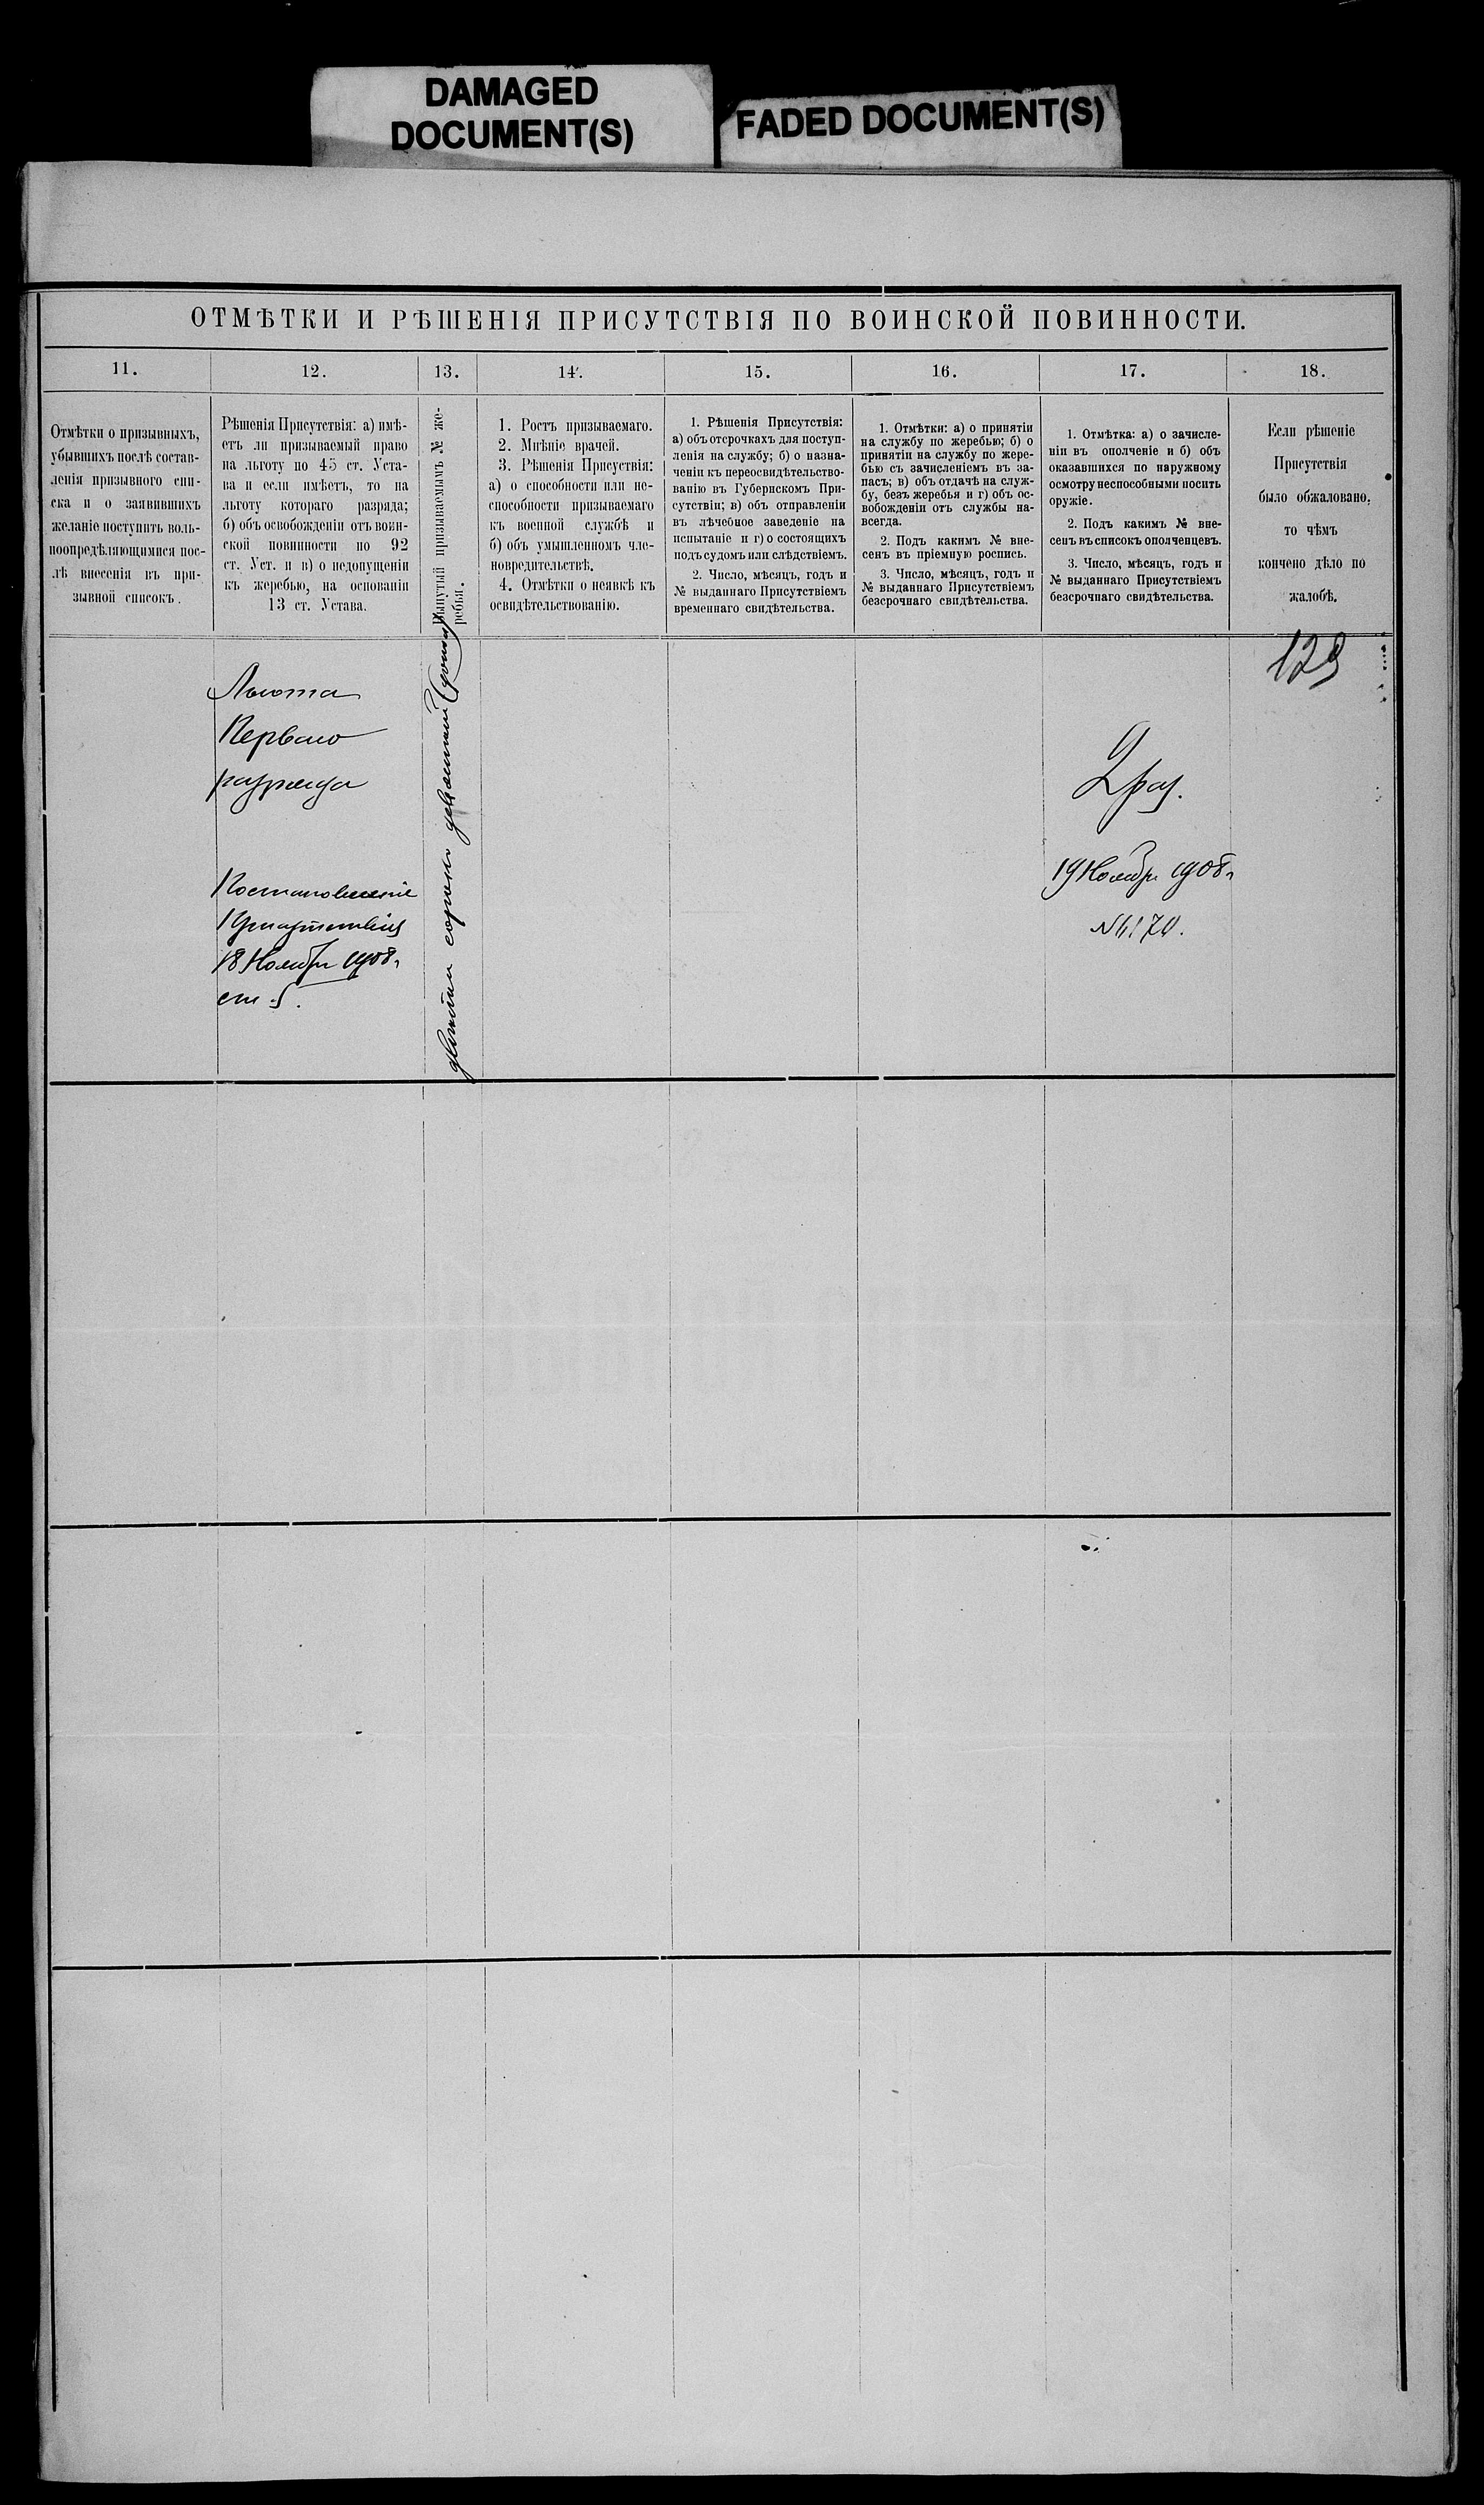 DAMAGED
DOCUMENT(S)
FADED DOCUMENT(S)
ОТМѢТКИ И РѢШЕНІЯ ПРИСУТСТВІЯ ПО ВОИНСКОЙ ПОВИННОСТИ.
11.
12.
13.
14.
15.
16.
17.
18.
Отмѣтки о призывныхъ,
убывшихъ послѣ состав-
ленія призывного спи-
ска и о заявившихъ
желаніе поступить воль-
ноопредѣляющимися пос-
лѣ внесенія въ при-
зывной списокъ.
Рѣшенія Присутствія: а) имѣ-
етъ ли призываемый право
на льготу по 45 ст. Уста-
ва и если имѣетъ, то на
льготу котораго разряда;
б) объ освобожденіи отъ воин-
ской повинности по 92
ст. Уст. и в) о недопущеніи
къ жеребью, на основаніи
13 ст. Устава.
Вынутый призываемымъ № же-
ребья.
1. Ростъ призываемаго.
2. Мнѣніе врачей.
3. Рѣшенія Присутствія:
а) о способности или не-
способности призываемаго
къ военной службѣ и
б) объ умышленномъ чле-
новредительствѣ.
4. Отмѣтки о неявкѣ къ
освидѣтельствованію.
1. Рѣшенія Присутствія:
а) объ отсрочкахъ для поступ-
ленія на службу; б) о назна-
ченіи къ переосвидѣтельство-
ванію въ Губернскомъ При-
сутствіи; в) объ отправленіи
въ лѣчебное заведеніе на
испытаніе и г) о состоящихъ
подъ судомъ или слѣдствіемъ.
2. Число, мѣсяцъ, годъ и
№ выданнаго Присутствіемъ
временнаго свидѣтельства.
1. Отмѣтки: а) о принятіи
на службу по жеребью; б) о
принятіи на службу по жере-
бью съ зачисленіемъ въ за-
пасъ; в) объ отдачѣ на служ-
бу, безъ жеребья и г) объ ос-
вобожденіи отъ службы на-
всегда.
2. Подъ какимъ № вне-
сенъ въ пріемную роспись.
3. Число, мѣсяцъ, годъ и
№ выданнаго Присутствіемъ
безсрочнаго свидѣтельства.
1. Отмѣтка: а) о зачисле-
ніи въ ополченіе и б) объ
оказавшихся по наружному
осмотру неспособными носить
оружіе.
2. Подъ какимъ № вне-
сенъ въ списокъ ополченцевъ.
3. Число, мѣсяцъ, годъ и
№ выданнаго Присутствіемъ
безсрочнаго свидѣтельства.
Если рѣшеніе
Присутствія
было обжаловано,
то чѣмъ
кончено дѣло по
жалобѣ.
129
Льгота
Перваго
разряда
Постановленіе
Присутствія
18 Ноября 1908 г
ст 5.
двѣсти сорокъ девятый
2 раз.
19 Ноября 1908 г